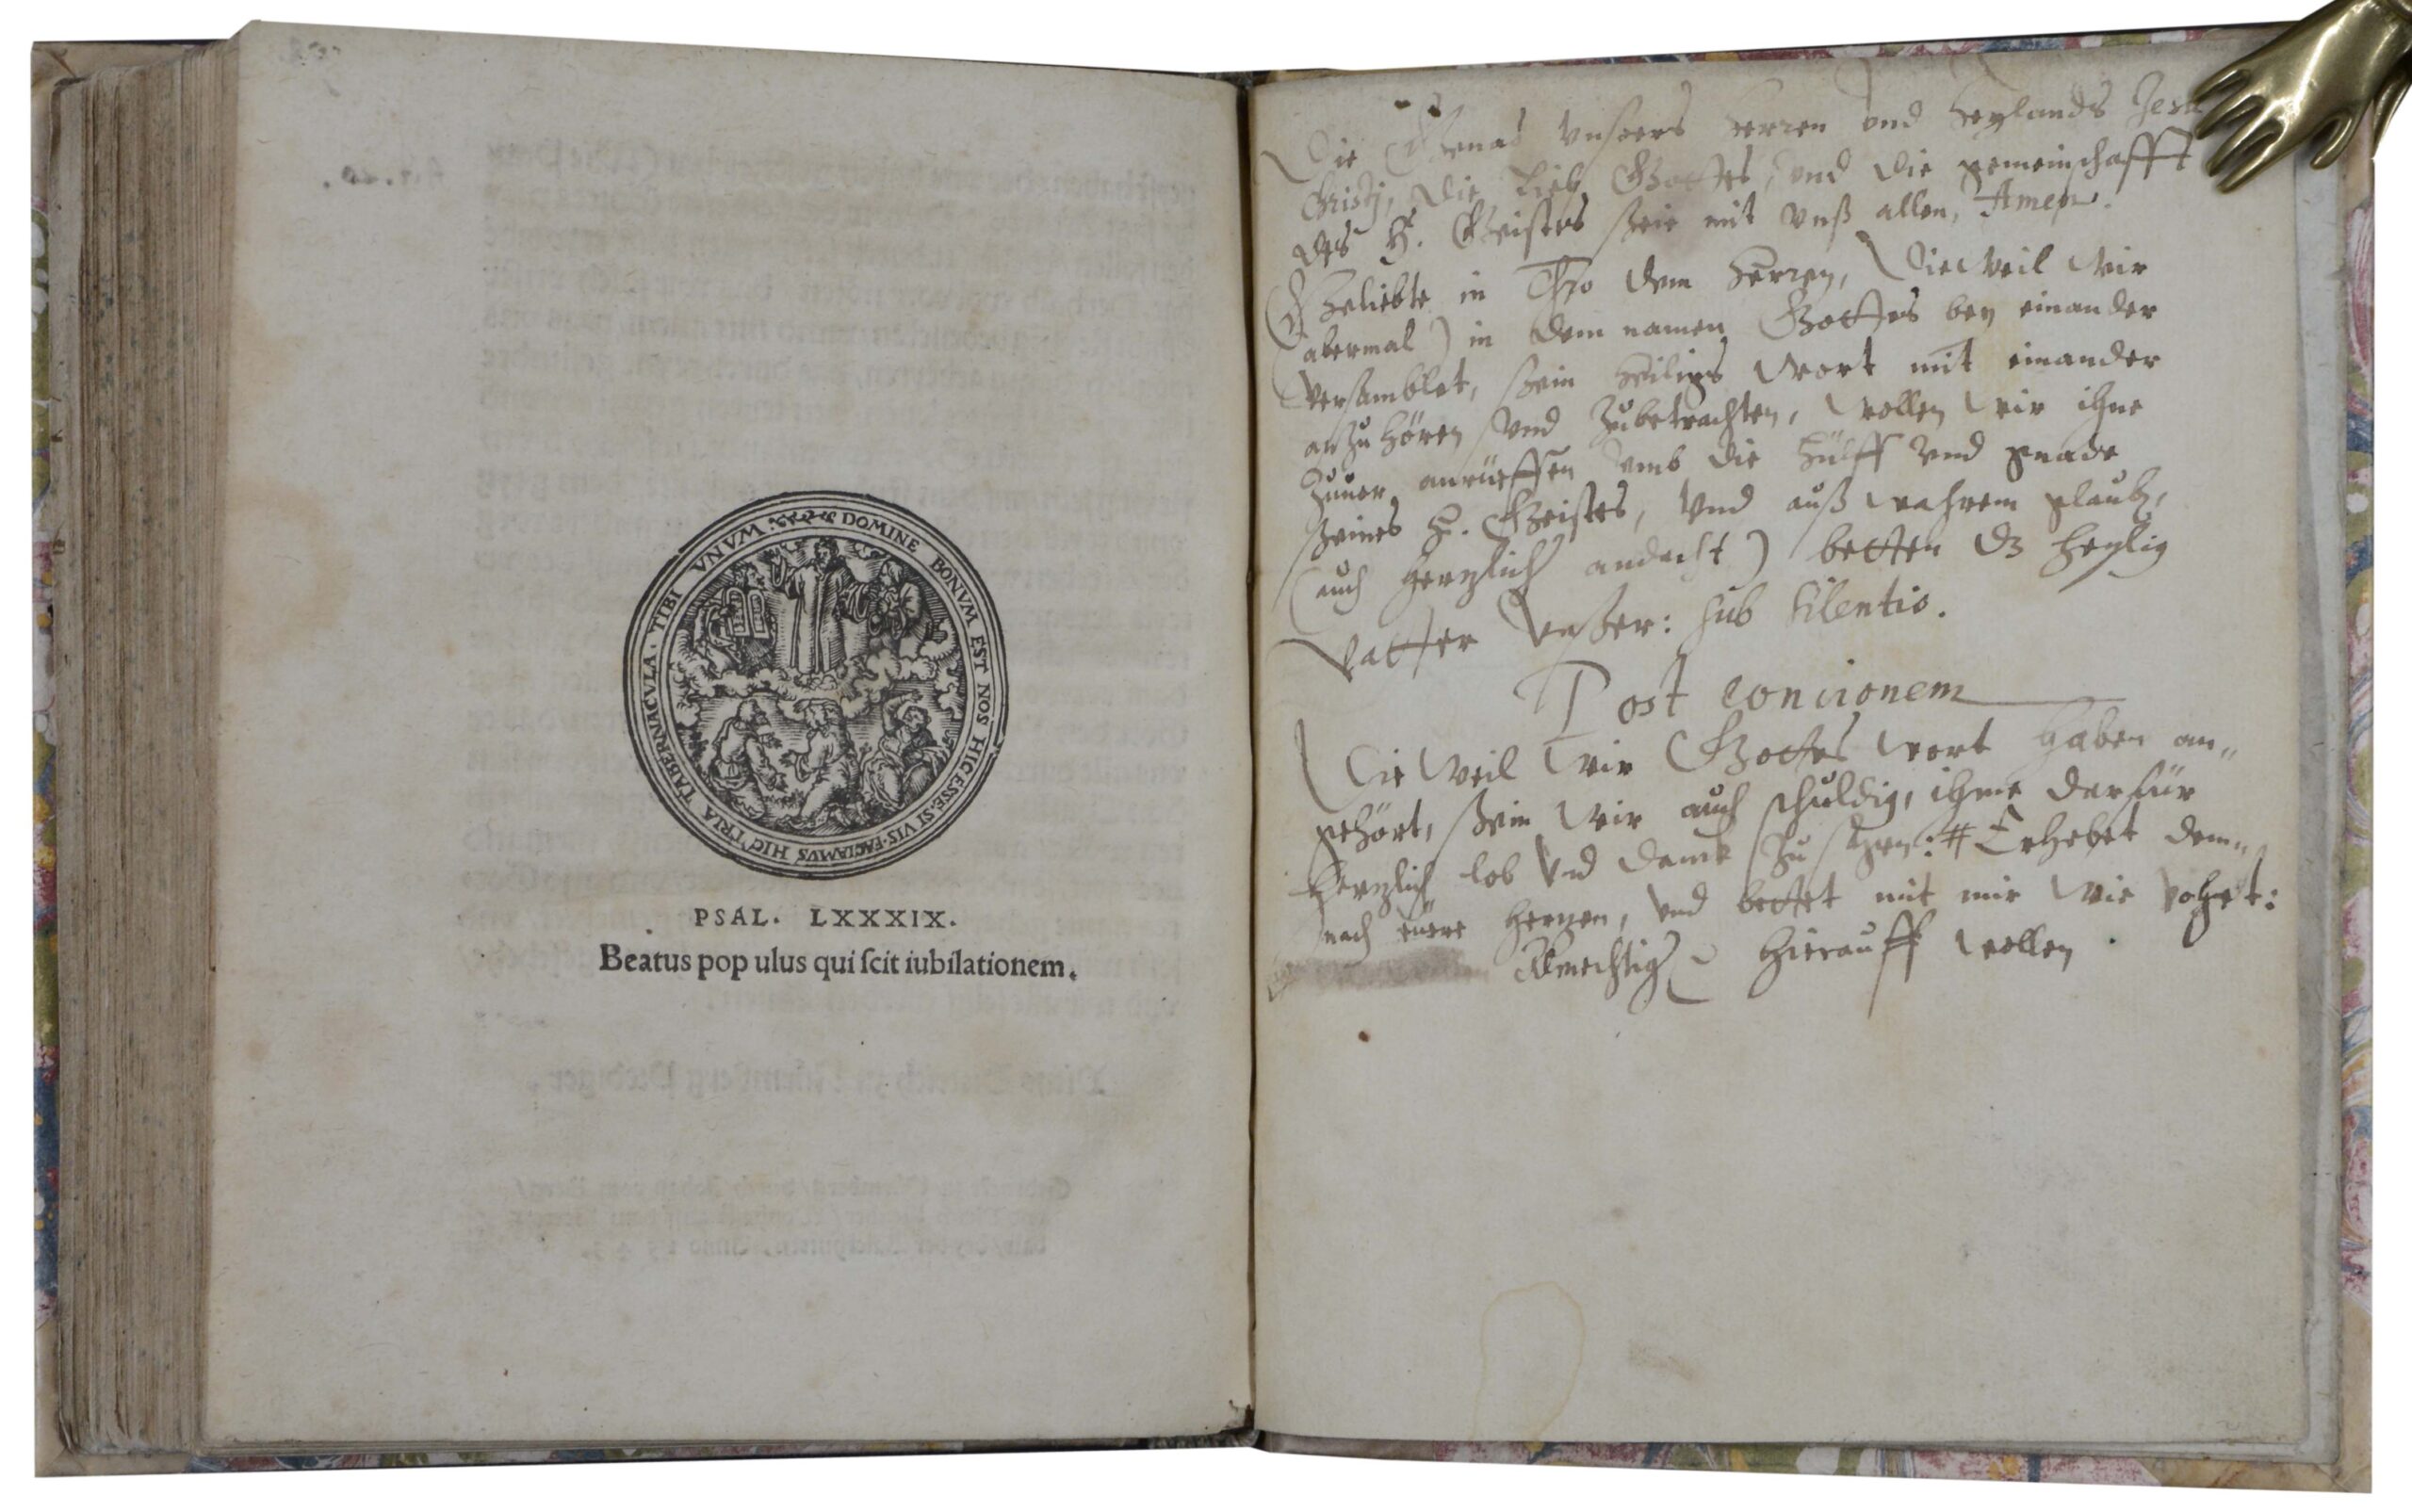 DOMINE BONVM EST NOS HIC ESSE. SI VIS. FACIAMVS HIC TRIA TABERNACVLA. TIBI VNVM
PSAL. LXXXIX.
Beatus pop ulus qui ſcit iubilationem.
Die Genad vnsers Herren vnd Heylands Jesu
Christj, die Lieb Gottes, vnd die gemeinschafft
des H. Geistes seie mit vnß allen, Amen.
Geliebte in Chro dem Herren, Die Weil Wir
(abermal) in dem namen Gottes bey einander
Versamblet, sein Heiligs Wort mit einander
anzu hören Vnd Zubetrachten, Wollen Wir ihne
Zuuor anrüeffen vmb die Hülff Vnd gnade
seines H. Geistes, Vnd auß Wahrem glaub,
(auch hertzlich andacht) betten dz heylig
Vatter Vnser: sub silentio.
Post concionem
Die Weil Wir Gottes Wort haben an„
gehört, sein Wir auch schuldig, ihme darfür
hertzlich lob Vnd danck zu : # Erhebet dem„
nach eüere hertzen, Vnd bettet mit mir Wie Volget:
Allmechtig hierauff Wollen